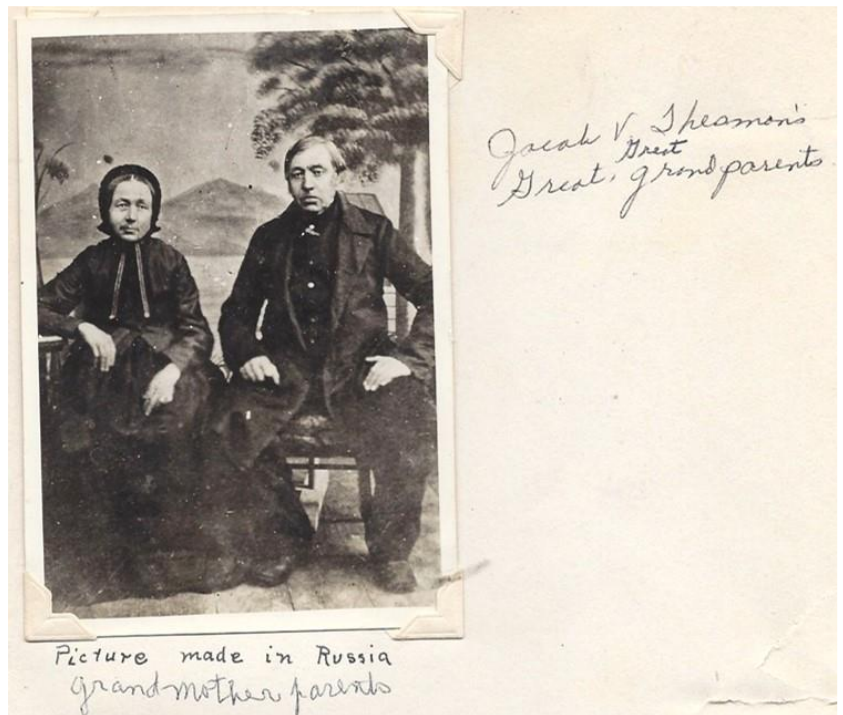 Jacob V. Thesman's
Great
Great, grandparents
Picture made in Russia
grandmother parents